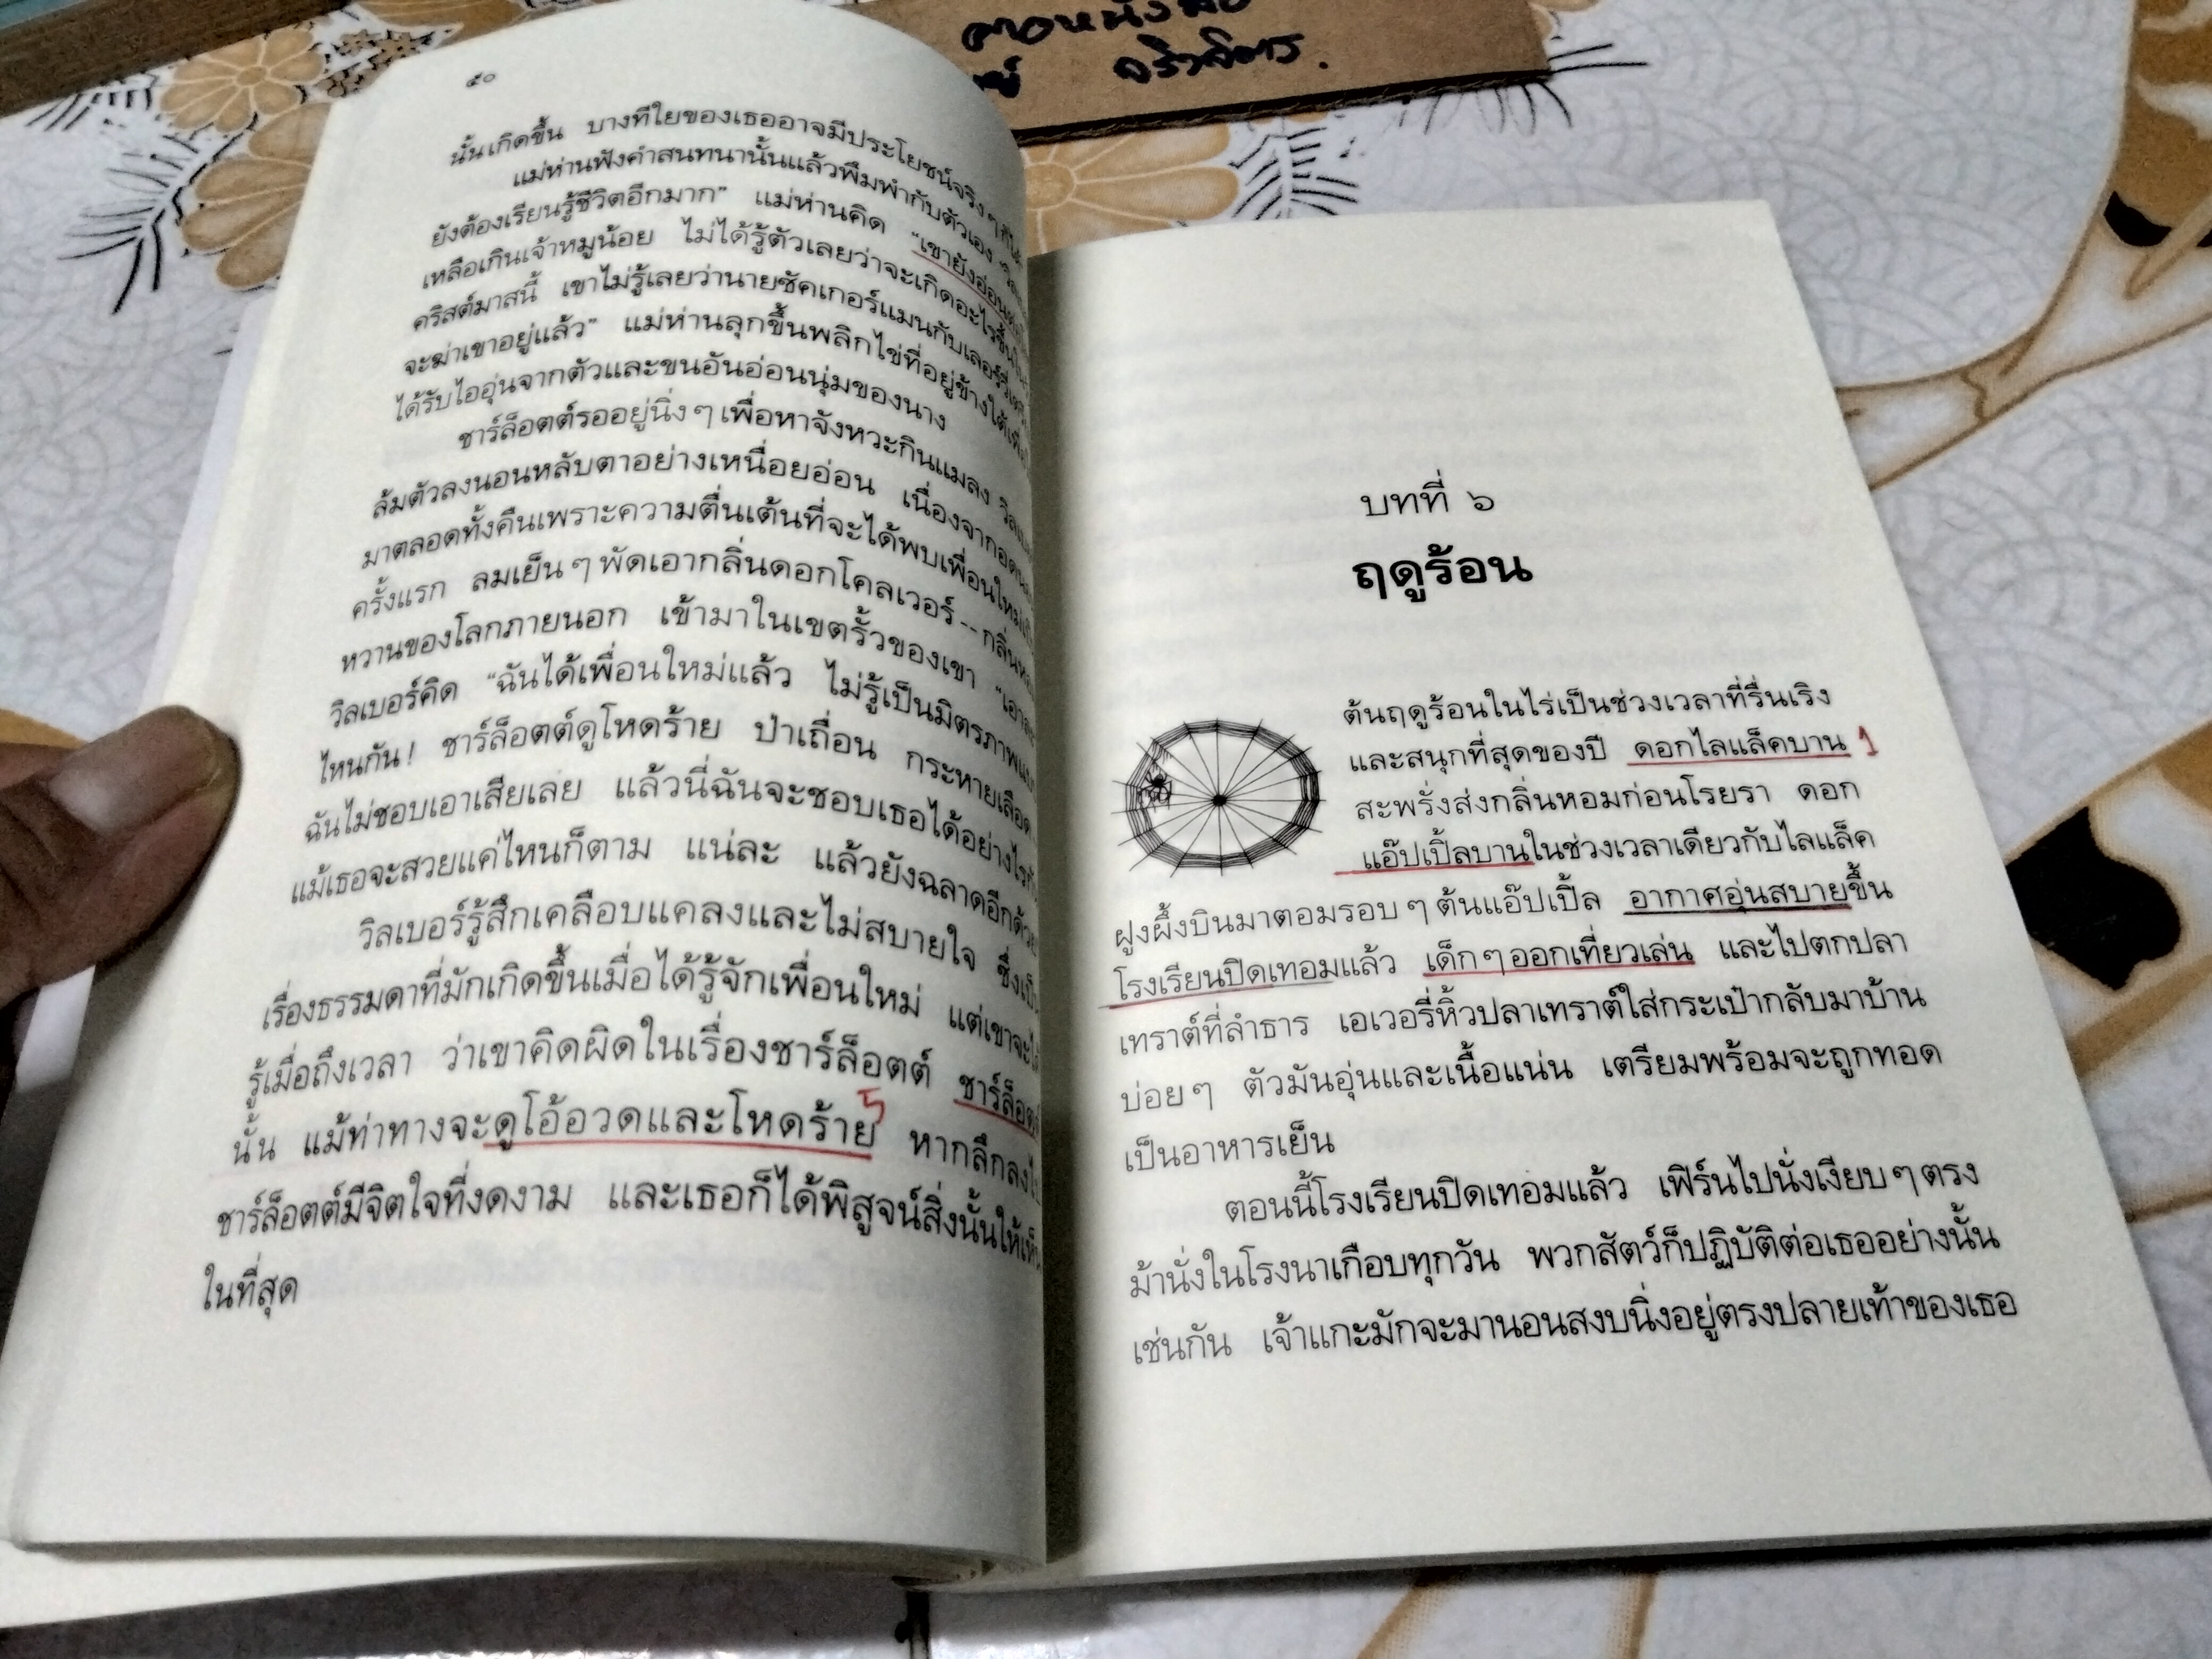 จริวจิตร.
๕๐
นั้นเกิดขึ้น บางทีใยของเธออาจมีประโยชน์จริงๆ ก็ได้
แม่ห่านฟังคำสนทนานั้นแล้วพึมพำกับตัวเอง
ยังต้องเรียนรู้ชีวิตอีกมาก” แม่ห่านคิด “เขายังอ่อน
เหลือเกินเจ้าหมูน้อย ไม่ได้รู้ตัวเลยว่าจะเกิดอะไรขึ้นใน
คริสต์มาสนี้ เขาไม่รู้เลยว่านายซัคเกอร์แมนกับเลอร์วี่
จะฆ่าเขาอยู่แล้ว” แม่ห่านลุกขึ้นพลิกไข่ที่อยู่ข้างใต้
ได้รับไออุ่นจากตัวและขนอันอ่อนนุ่มของนาง
ชาร์ล็อตต์รออยู่นิ่งๆ เพื่อหาจังหวะกินแมลง
ล้มตัวลงนอนหลับตาอย่างเหนื่อยอ่อน เนื่องจาก
มาตลอดทั้งคืนเพราะความตื่นเต้นที่จะได้พบเพื่อนใหม่
ครั้งแรก ลมเย็นๆ พัดเอากลิ่นดอกโคลเวอร์--กลิ่น
หวานของโลกภายนอก เข้ามาในเขตรั้วของเขา
วิลเบอร์คิด “ฉันได้เพื่อนใหม่แล้ว ไม่รู้เป็นมิตรภาพ
ไหนกัน! ชาร์ล็อตต์ดูโหดร้าย ป่าเถื่อน กระหายเลือด
ฉันไม่ชอบเอาเสียเลย แล้วนี่ฉันจะชอบเธอได้อย่างไร
แม้เธอจะสวยแค่ไหนก็ตาม แน่ละ แล้วยังฉลาดอีกด้วย
วิลเบอร์รู้สึกเคลือบแคลงและไม่สบายใจ ซึ่ง
เรื่องธรรมดาที่มักเกิดขึ้นเมื่อได้รู้จักเพื่อนใหม่ แต่เขาจะ
รู้เมื่อถึงเวลา ว่าเขาคิดผิดในเรื่องชาร์ล็อตต์
นั้น แม้ท่าทางจะดูโอ้อวดและโหดร้าย 5 หากลึกลง
ชาร์ล็อตต์มีจิตใจที่งดงาม และเธอก็ได้พิสูจน์สิ่งนั้นให้
ในที่สุด
บทที่ ๖
ฤดูร้อน
ต้นฤดูร้อนในไร่เป็นช่วงเวลาที่รื่นเริง
และสนุกที่สุดของปี ดอกไลแล็คบาน 1
สะพรั่งส่งกลิ่นหอมก่อนโรยรา ดอก
แอ๊ปเปิ้ลบานในช่วงเวลาเดียวกับไลแล็ค
ฝูงผึ้งบินมาตอมรอบๆ ต้นแอ๊ปเปิ้ล อากาศอุ่นสบายขึ้น
โรงเรียนปิดเทอมแล้ว เด็กๆ ออกเที่ยวเล่น และไปตกปลา
เทราต์ที่ลำธาร เอเวอรี่หิ้วปลาเทราต์ใส่กระเป๋ากลับมาบ้าน
บ่อยๆ ตัวมันอุ่นและเนื้อแน่น เตรียมพร้อมจะถูกทอด
เป็นอาหารเย็น
ตอนนี้โรงเรียนปิดเทอมแล้ว เฟิร์นไปนั่งเงียบๆ ตรง
ม้านั่งในโรงนาเกือบทุกวัน พวกสัตว์ก็ปฏิบัติต่อเธออย่างนั้น
เช่นกัน เจ้าแกะมักจะมานอนสงบนิ่งอยู่ตรงปลายเท้าของเธอ